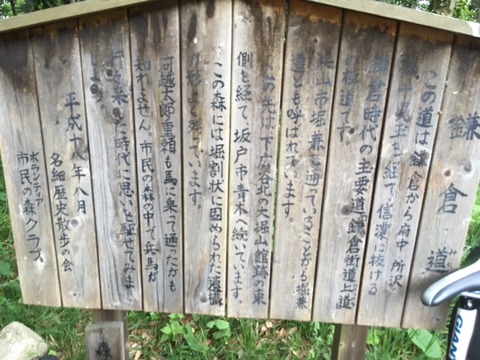 鎌倉道
この道は鎌倉から府中、所沢
を経て、信濃に抜ける
鎌倉時代の主要道「鎌倉街道上道」
の枝道です。
狭山市堀兼を通っていることから堀兼
道とも呼ばれています。
この先は、下広谷北の大堀山館跡の東
側を経て、坂戸市青木へ続いています。
この森には堀割状に固められた遺構
が残っています。
河越太郎重頼も馬に乗って通ったかも
知れません。市民の森の中で兵馬が
行き来した時代に思いを馳せてみま
平成十八年八月
名細歴史散歩の会
ボランティア
市民の森クラブ
GIANT